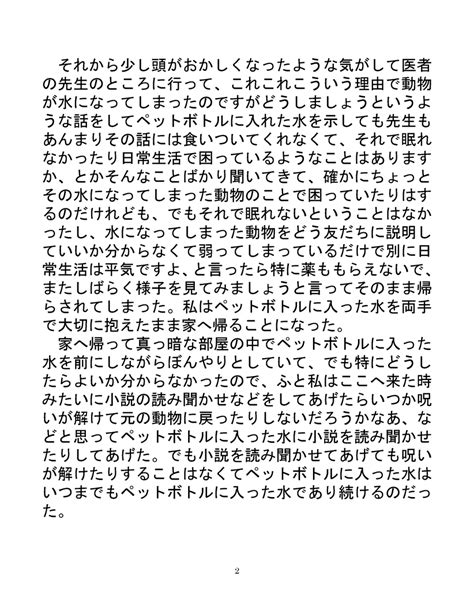 それから少し頭がおかしくなったような気がして医者
の先生のところに行って、これこれこういう理由で動物
が水になってしまったのですがどうしましょうというよ
うな話をしてペットボトルに入れた水を示しても先生も
あんまりその話には食いついてくれなくて、それで眠れ
なかったり日常生活で困っているようなことはあります
か、とかそんなことばかり聞いてきて、確かにちょっと
その水になってしまった動物のことで困っていたりはす
るのだけれども、でもそれで眠れないということはなか
ったし、水になってしまった動物をどう友だちに説明し
ていいか分からなくて弱ってしまっているだけで別に日
常生活は平気ですよ、と言ったら特に薬ももらえないで、
またしばらく様子を見てみましょうと言ってそのまま帰
らされてしまった。私はペットボトルに入った水を両手
で大切に抱えたまま家へ帰ることになった。
　家へ帰って真っ暗な部屋の中でペットボトルに入った
水を前にしながらぼんやりとしていて、でも特にどうし
たらよいか分からなかったので、ふと私はここへ来た時
みたいに小説の読み聞かせなどをしてあげたらいつか呪
いが解けて元の動物に戻ったりしないだろうかなあ、な
どと思ってペットボトルに入った水に小説を読み聞かせ
たりしてあげた。でも小説を読み聞かせてあげても呪い
が解けたりすることはなくてペットボトルに入った水は
いつまでもペットボトルに入った水であり続けるのだっ
た。
2